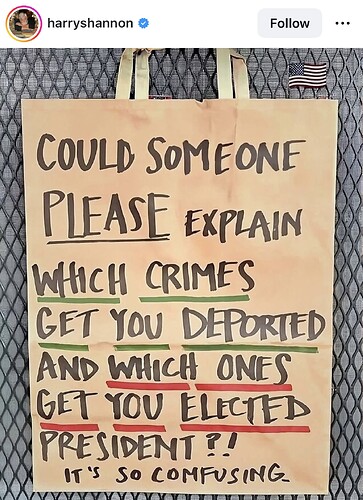 harryshannon
Follow
COULD SOMEONE
PLEASE EXPLAIN
WHICH CRIMES
GET YOU DEPORTED
AND WHICH ONES
GET YOU ELECTED
PRESIDENT?!
IT'S SO COMFUSING.